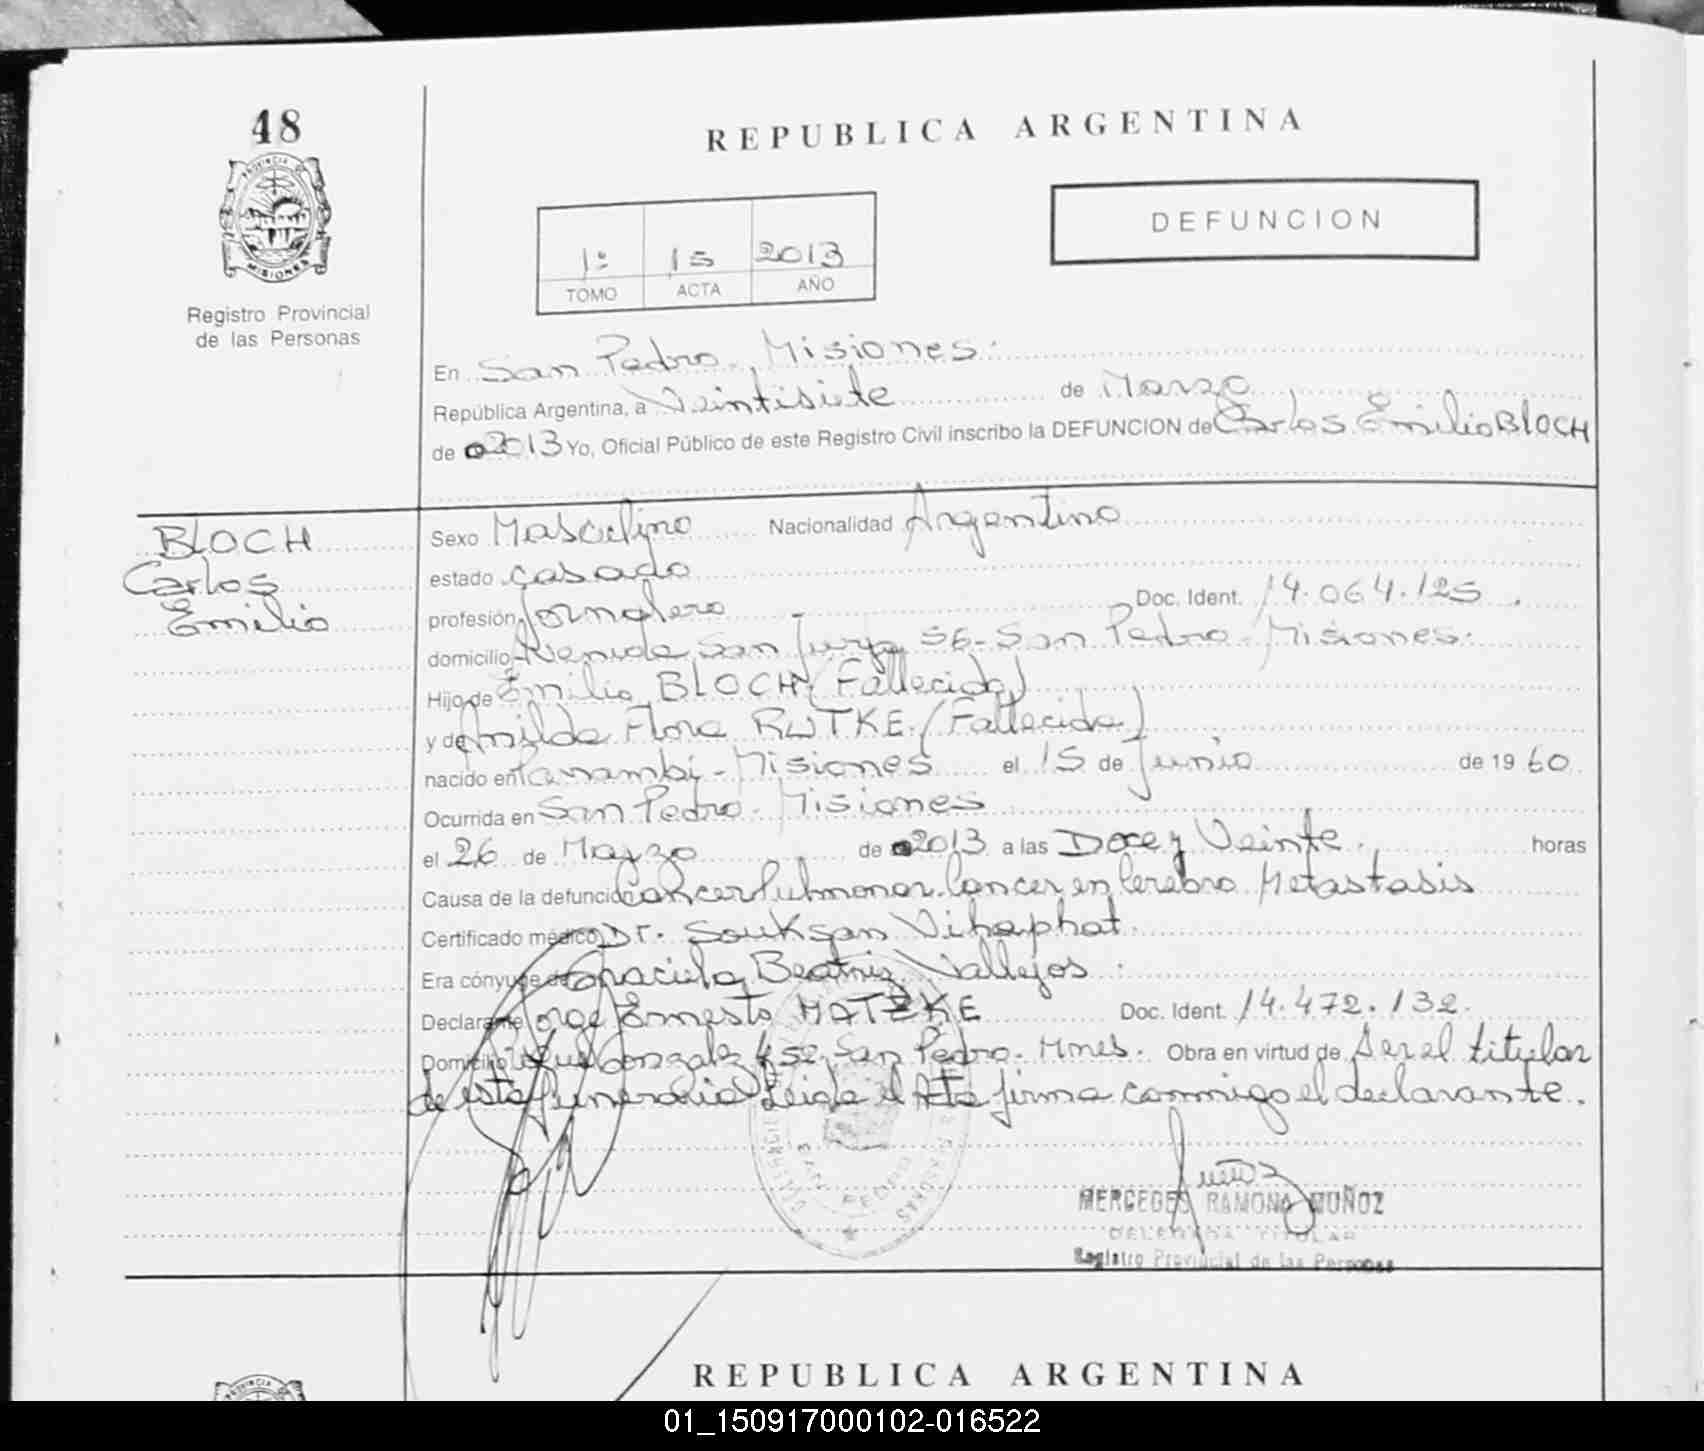 48
REPUBLICA ARGENTINA
PROVINCIA DE
MISIONES
Registro Provincial
de las Personas
1º 15 2013
TOMO ACTA AÑO
DEFUNCION
En San Pedro. Misiones.
República Argentina, a Veintisiete de Marzo
de 2013 Yo, Oficial Público de este Registro Civil inscribo la DEFUNCION de Carlos Emilio BLOCH
BLOCH
Carlos
Emilio
Sexo Masculino Nacionalidad Argentino
estado casado
profesión Jornalero Doc. Ident. 14.064.125.
domicilio Avenida San Jorge 56 - San Pedro - Misiones.
Hijo de Emilio BLOCH (Fallecido)
y de Anilda Flora RUTKE (Fallecida)
nacido en Panambi - Misiones el 15 de Junio de 1960
Ocurrida en San Pedro - Misiones
el 26 de Marzo de 2013 a las Doce y Veinte. horas
Causa de la defunción Cancer Pulmonar. Cancer en Cerebro Metastasis
Certificado médico Dr. Souksan Vihaphat.
Era cónyuge de Graciela Beatriz Vallejos.
Declarante Jorge Ernesto MATZKE Doc. Ident. 14.472.132.
Domicilio Gonzalz 452. San Pedro. Mnes. Obra en virtud de Ser el titular
de esta funeraria Leida el Acta firma conmigo el declarante.
SAN PEDRO
MERCEDES RAMONA MUÑOZ
DELEGADA TITULAR
Registro Provincial de las Personas
REPUBLICA ARGENTINA
PROVINCIA
01_150917000102-016522